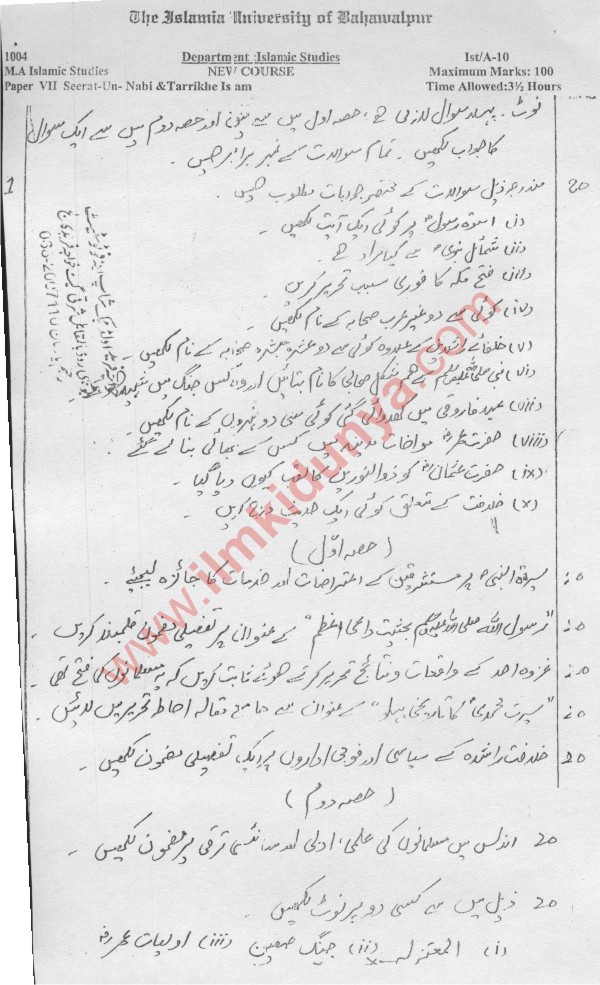 The Islamia University of Bahawalpur
1004
Department :Islamic Studies
Ist/A-10
M.A Islamic Studies
NEW COURSE
Maximum Marks: 100
Paper VII Seerat-Un- Nabi &Tarrikhe Is am
Time Allowed:3½ Hours
نوٹ۔ پہلا سوال لازمی ہے، حصہ اول میں سے تین اور حصہ دوم میں سے ایک سوال
کا جواب لکھیں۔ تمام سوالات کے نمبر برابر ہیں۔
1 مندرجہ ذیل سوالات کے مختصر جوابات مطلوب ہیں۔ 20
(i) اسوۂ رسولؐ پر کوئی ایک آیت لکھیں۔
(ii) شمائل نبویؐ سے کیا مراد ہے۔
(iii) فتح مکہ کا فوری سبب تحریر کریں۔
(iv) کوئی سے دو غیر عرب صحابہ کے نام لکھیں۔
(v) خلفائے راشدین کے علاوہ کوئی سے دو عشرہ مبشرہ صحابہ کے نام لکھیں۔
(vi) نبی صلی اللہ علیہ وسلم کے ہم شکل صحابی کا نام بتائیں اور وہ کس جنگ میں شہید
(vii) عہد فاروقی میں کھدوائی گئی کوئی سی دو نہروں کے نام لکھیں۔
(viii) حضرت عمرؓ مواخات مدینہ میں کس کے بھائی بنائے گئے۔
(ix) حضرت عثمانؓ کو ذوالنورین کا لقب کیوں دیا گیا۔
(x) خلافت کے متعلق کوئی ایک حدیث درج کریں۔
(حصہ اوّل)
سیرۃ النبیؐ پر مستشرقین کے اعتراضات اور خدمات کا جائزہ لیجیے۔ 20
"رسول اللہ صلی اللہ علیہ وسلم بحیثیت داعی اعظم" کے عنوان پر تفصیلی مضمون قلمبند کریں۔ 20
غزوہ احد کے واقعات و نتائج تحریر کرتے ہوئے ثابت کریں کہ یہ مسلمانوں کی فتح تھی۔ 20
"سیرت محمدیؐ کا تاریخی پہلو" کے عنوان سے جامع مقالہ احاطہ تحریر میں لائیں۔ 20
خلافت راشدہ کے سیاسی اور فوجی اداروں پر ایک تفصیلی مضمون لکھیں۔ 20
(حصہ دوم)
اندلس میں مسلمانوں کی علمی، ادبی اور سائنسی ترقی پر مضمون لکھیں۔ 20
ذیل میں سے کسی دو پر نوٹ لکھیں۔ 20
(i) المعتزلہ (ii) جنگ صفین (iii) اولیات عمرؓ
www.ilmkidunya.com